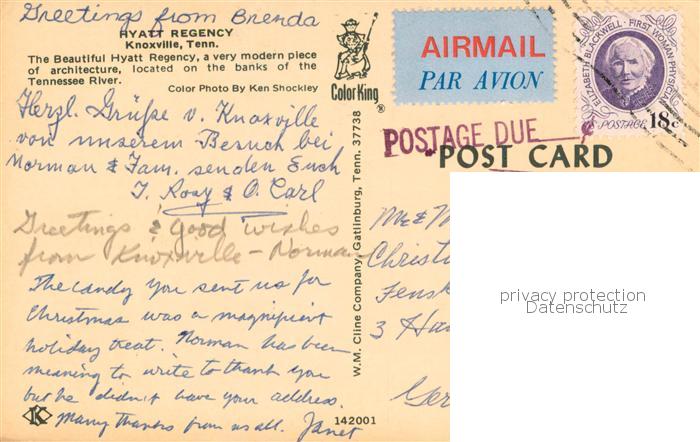 Greetings from Brenda
HYATT REGENCY
Knoxville, Tenn.
The Beautiful Hyatt Regency, a very modern piece
of architecture, located on the banks of the
Tennessee River.
Color Photo By Ken Shockley
Herzl. Grüße v. Knoxville
von unserem Besuch bei
Norman & Fam. senden Euch
T. Rosy & O. Carl
Greetings & good wishes
from Knoxville - Norman
The candy you sent us for
Christmas was a magnificent
holiday treat. Norman has been
meaning to write to thank you
but he didn't have your address.
Many thanks from us all. Janet
K
142001
Color King
®
W.M. Cline Company, Gatlinburg, Tenn. 37738
AIRMAIL
PAR AVION
ELIZABETH BLACKWELL · FIRST WOMAN PHYSICIAN
US POSTAGE 18c
POSTAGE DUE
POST CARD
Mr & M
Christi
Fensk
3 Han
Ger
privacy protection
Datenschutz